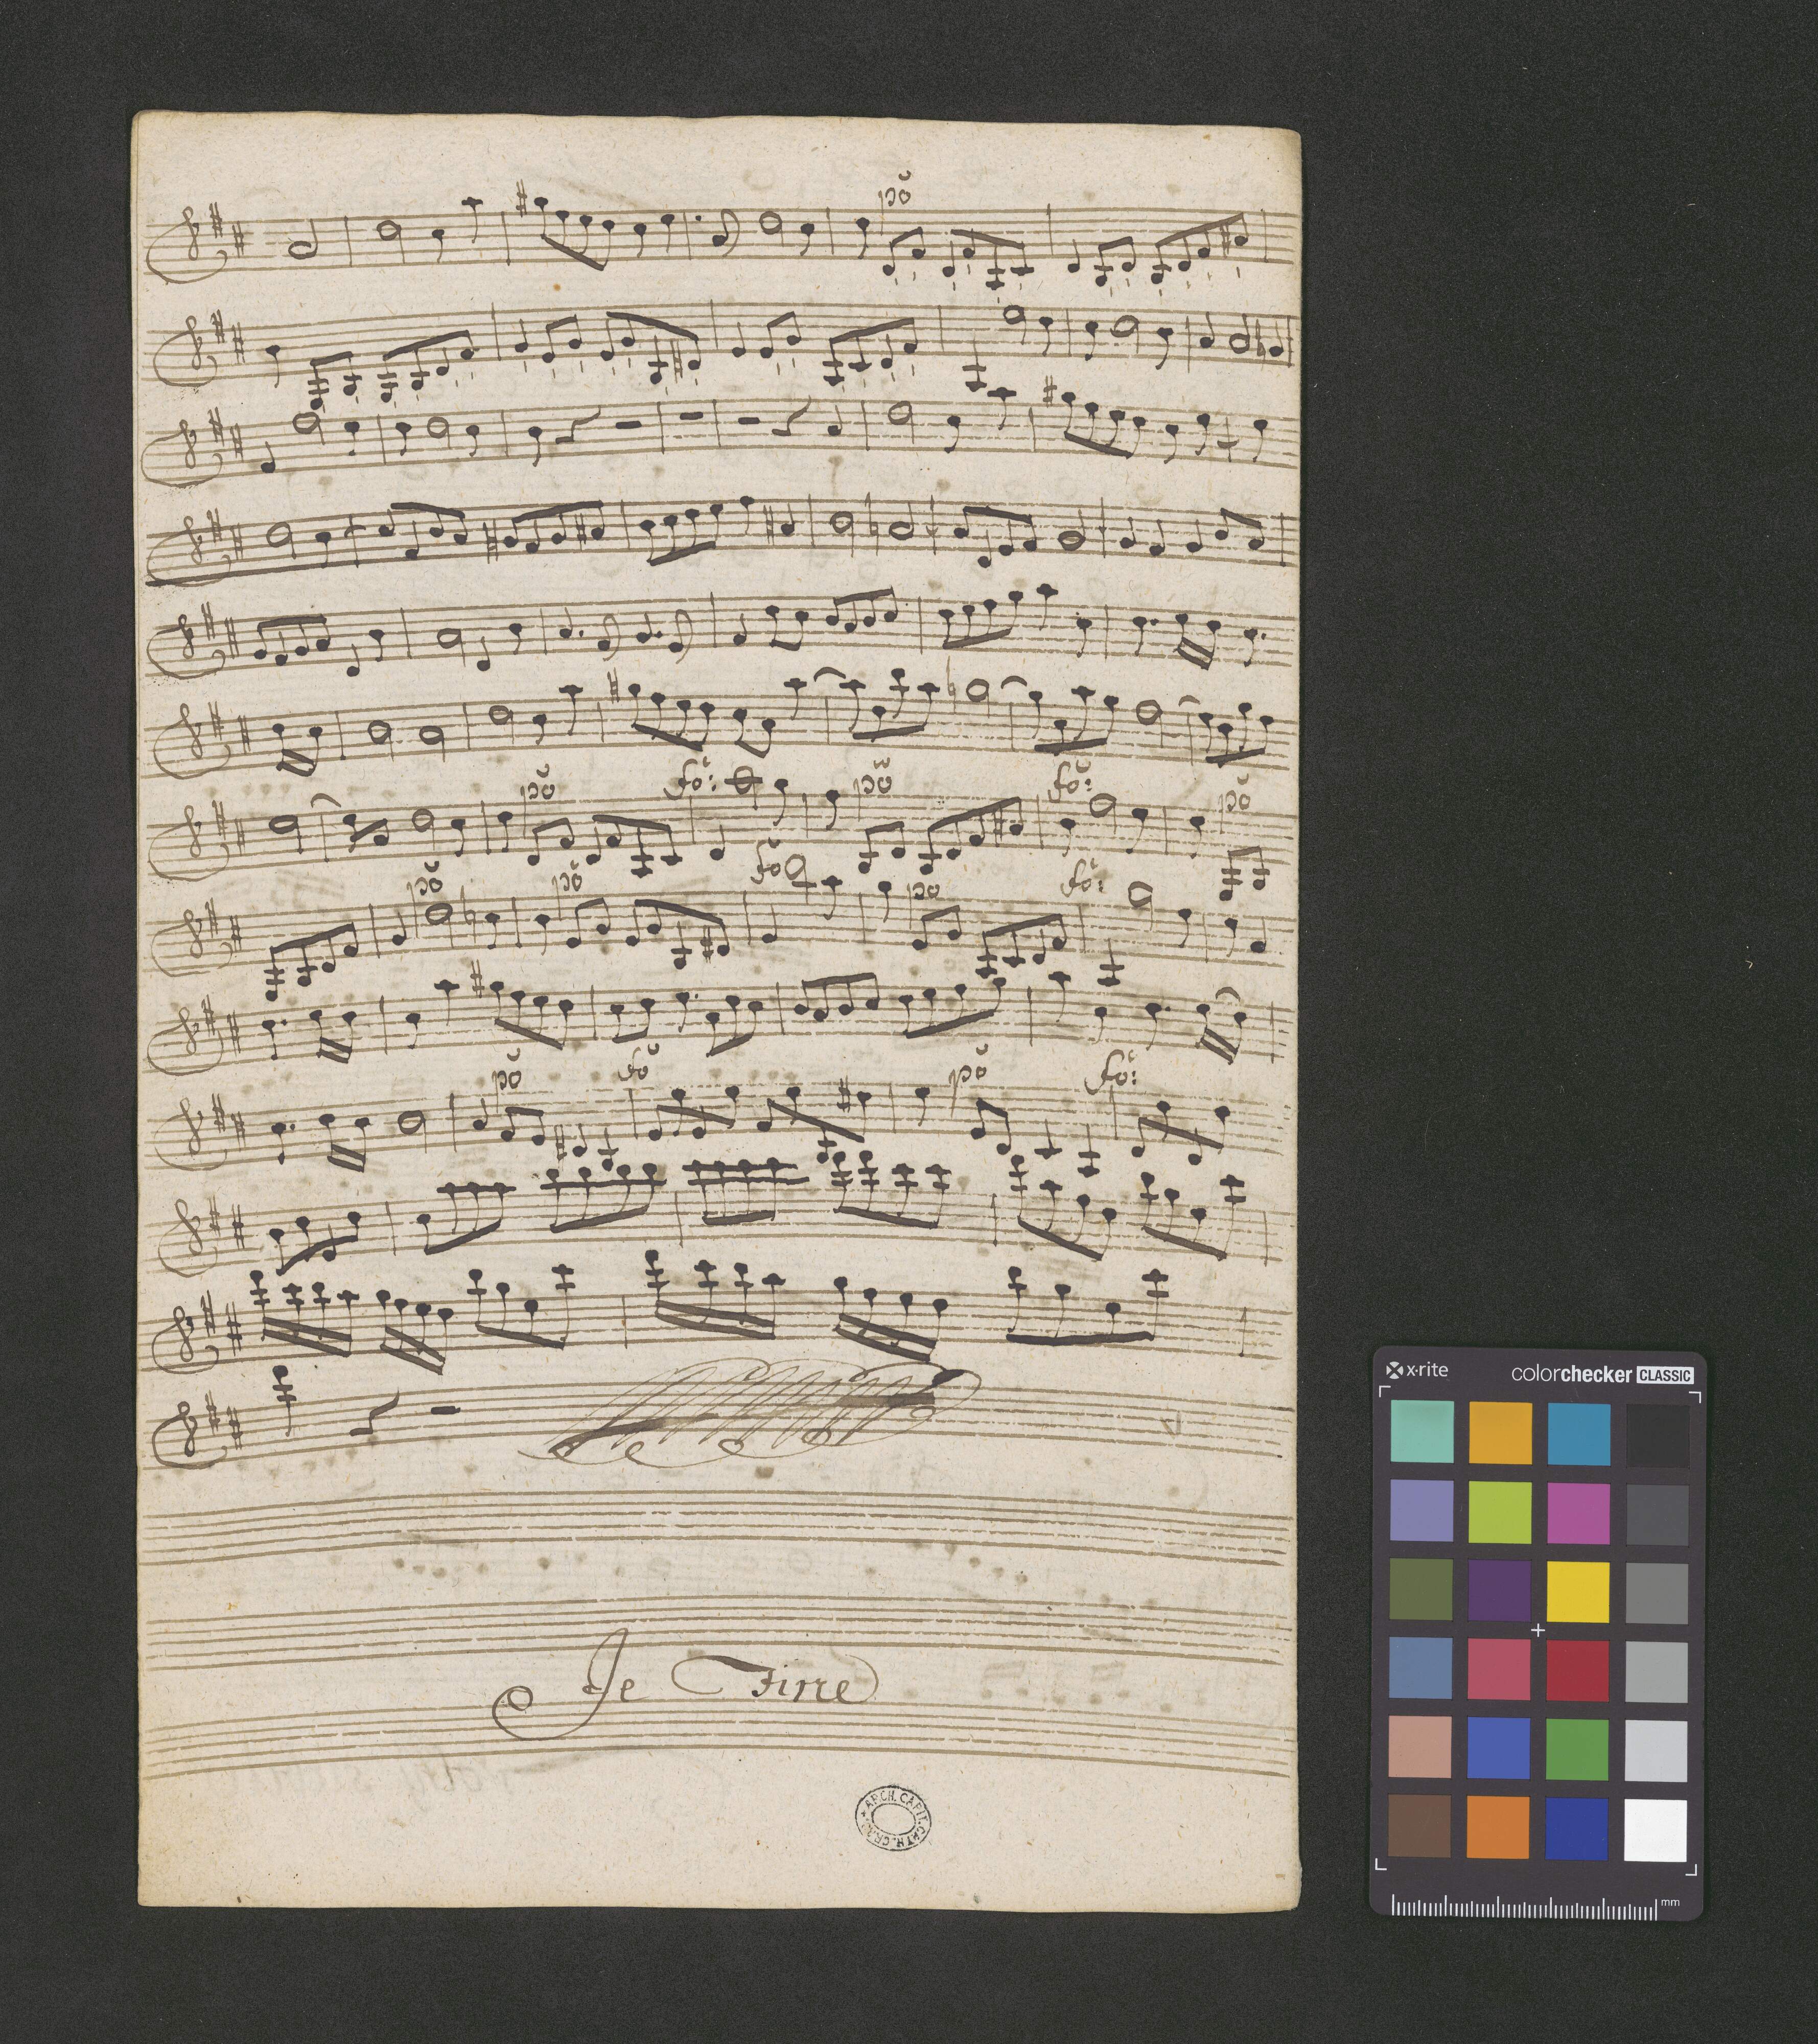 po
po fo: po fo: po
po po fo po fo:
po fo po fo:
Je Fine
ARCH. CAPIT. CATH. GRAN.
x-rite
colorchecker CLASSIC
mm